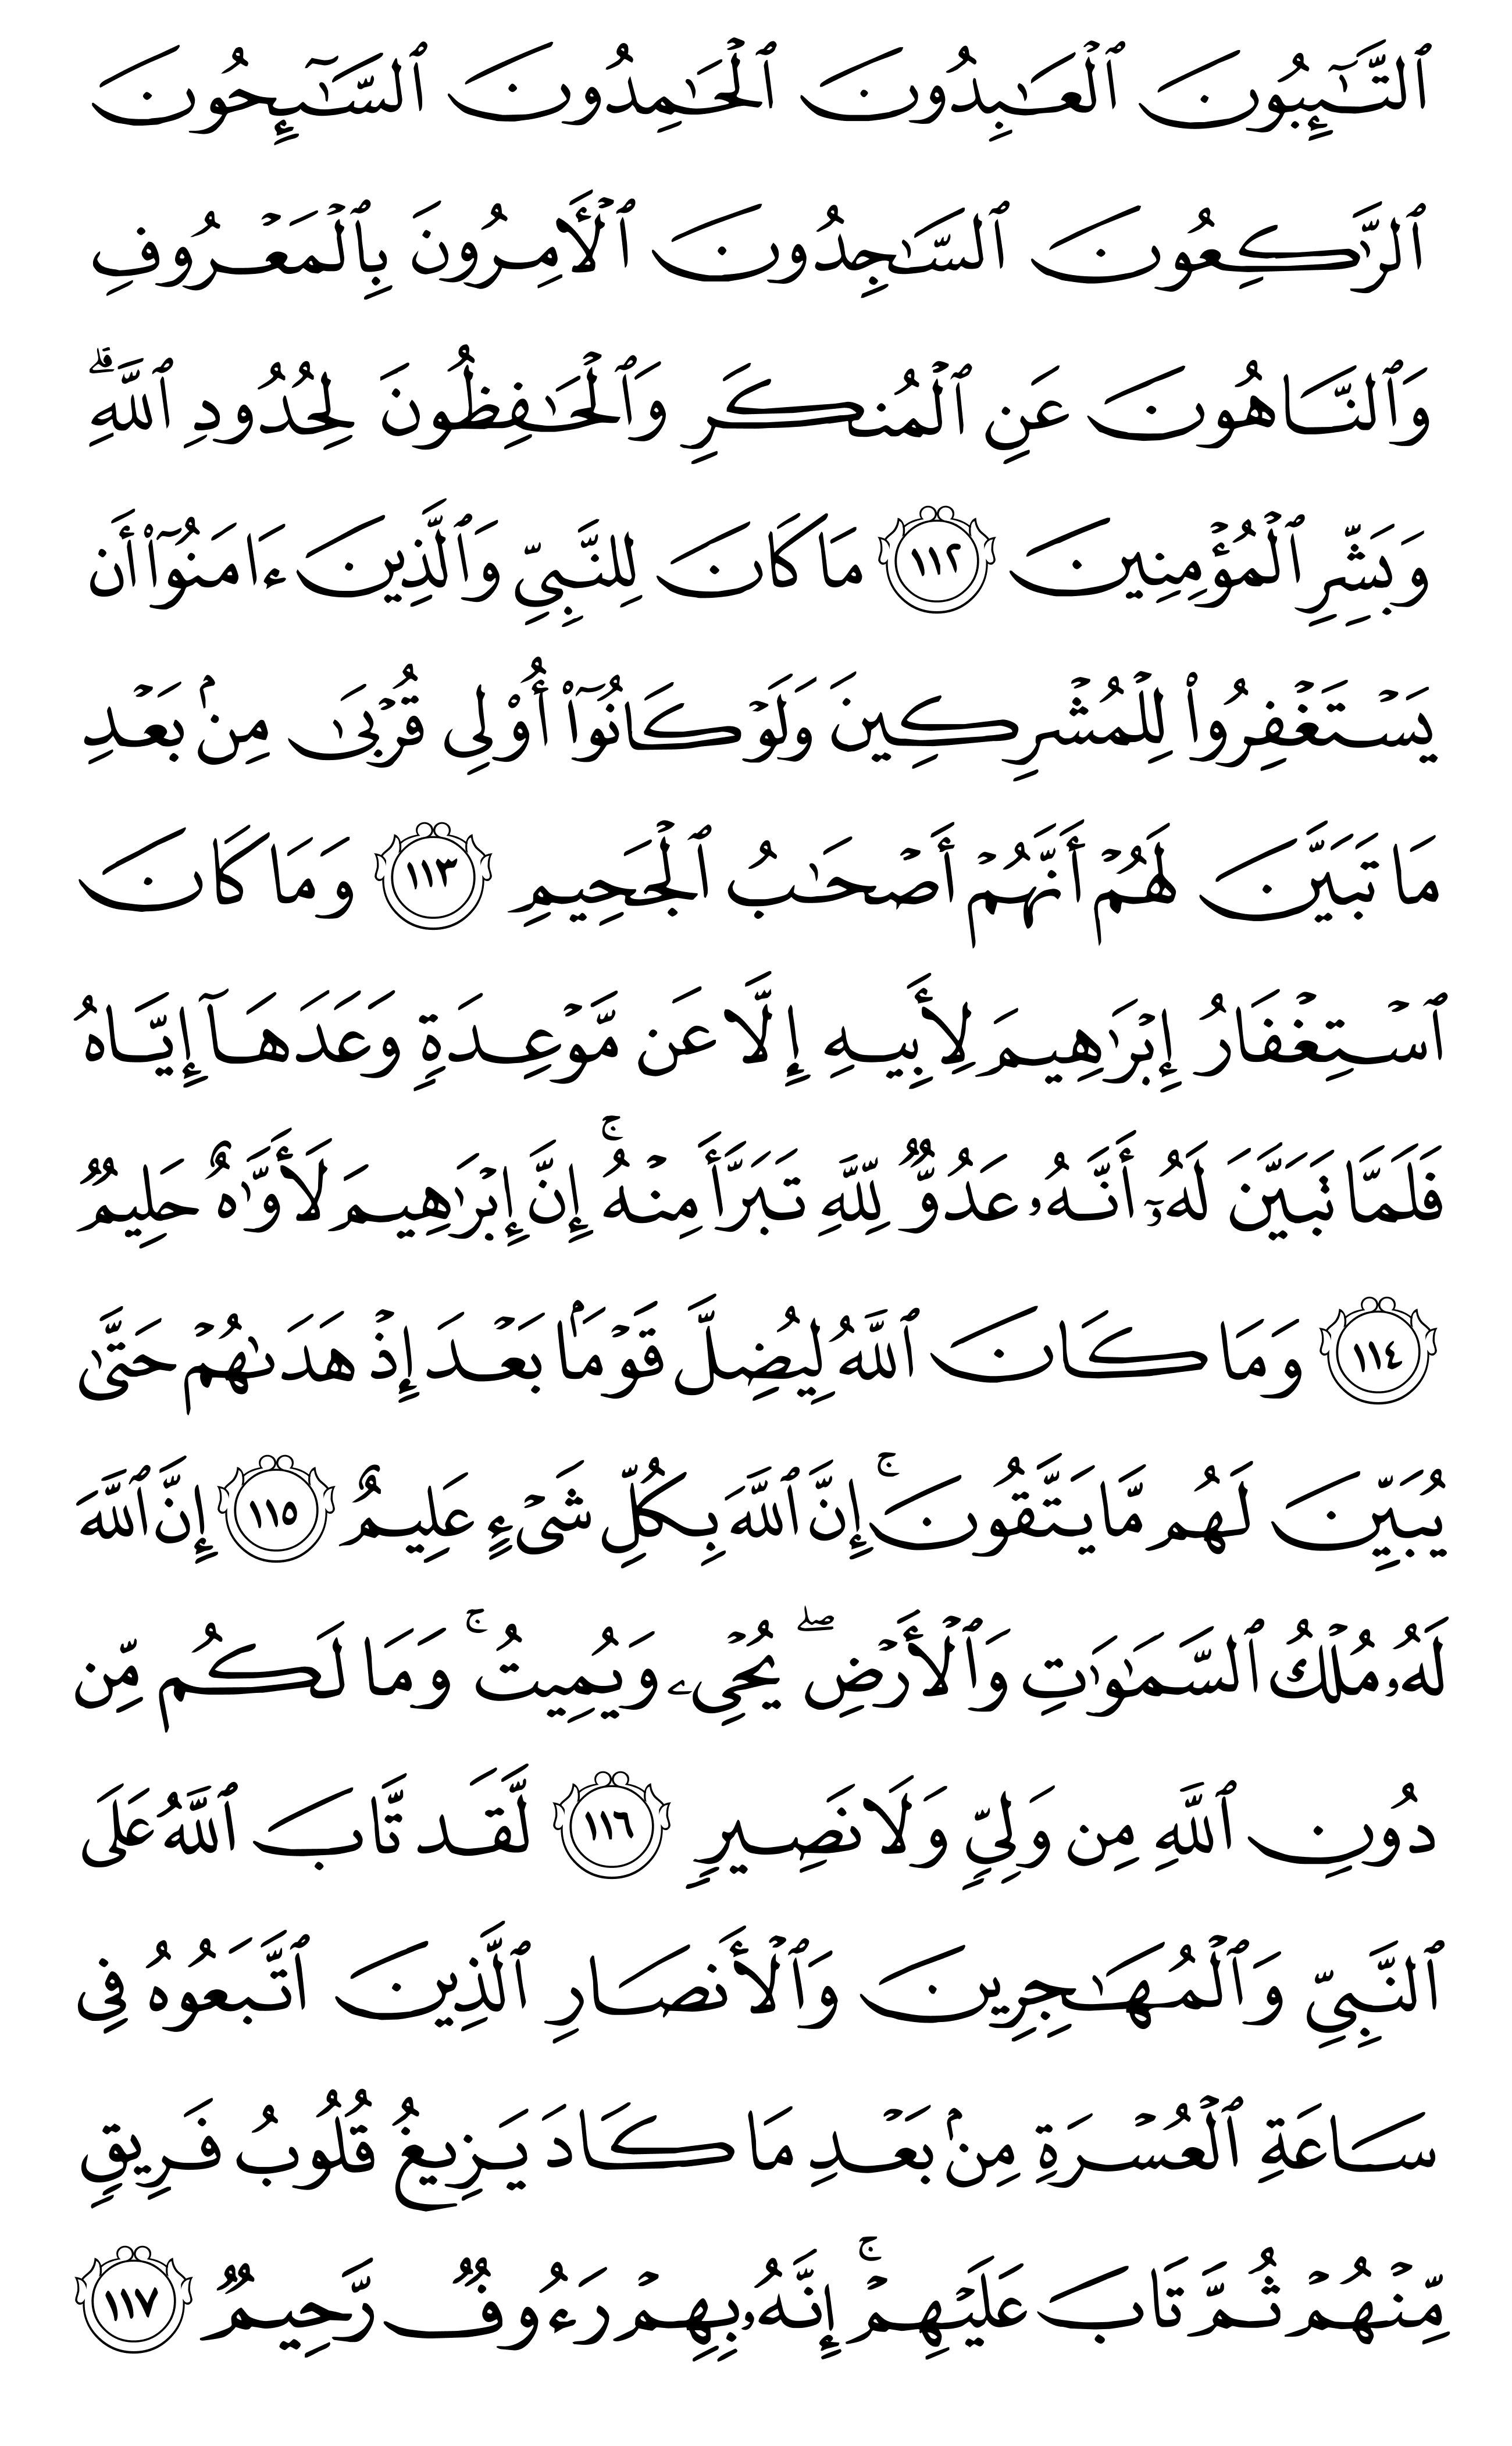 ٱلتَّـٰٓئِبُونَ ٱلْعَـٰبِدُونَ ٱلْحَـٰمِدُونَ ٱلسَّـٰٓئِحُونَ
ٱلرَّٰكِعُونَ ٱلسَّـٰجِدُونَ ٱلْأَمِرُونَ بِٱلْمَعْرُوفِ
وَٱلنَّاهُونَ عَنِ ٱلْمُنكَرِ وَٱلْحَـٰفِظُونَ لِحُدُودِ ٱللَّهِ ۗ
وَبَشِّرِ ٱلْمُؤْمِنِينَ ١١٢ مَا كَانَ لِلنَّبِىِّ وَٱلَّذِينَ ءَامَنُوٓا۟ أَن
يَسْتَغْفِرُوا۟ لِلْمُشْرِكِينَ وَلَوْ كَانُوٓا۟ أُو۟لِى قُرْبَىٰ مِنۢ بَعْدِ
مَا تَبَيَّنَ لَهُمْ أَنَّهُمْ أَصْحَـٰبُ ٱلْجَحِيمِ ١١٣ وَمَا كَانَ
ٱسْتِغْفَارُ إِبْرَٰهِيمَ لِأَبِيهِ إِلَّا عَن مَّوْعِدَةٍ وَعَدَهَآ إِيَّاهُ
فَلَمَّا تَبَيَّنَ لَهُۥٓ أَنَّهُۥ عَدُوٌّ لِّلَّهِ تَبَرَّأَ مِنْهُ ۚ إِنَّ إِبْرَٰهِيمَ لَأَوَّٰهٌ حَلِيمٌ
١١٤ وَمَا كَانَ ٱللَّهُ لِيُضِلَّ قَوْمًۢا بَعْدَ إِذْ هَدَىٰهُمْ حَتَّىٰ
يُبَيِّنَ لَهُم مَّا يَتَّقُونَ ۚ إِنَّ ٱللَّهَ بِكُلِّ شَىْءٍ عَلِيمٌ ١١٥ إِنَّ ٱللَّهَ
لَهُۥ مُلْكُ ٱلسَّمَـٰوَٰتِ وَٱلْأَرْضِ ۖ يُحْىِۦ وَيُمِيتُ ۚ وَمَا لَكُم مِّن
دُونِ ٱللَّهِ مِن وَلِىٍّ وَلَا نَصِيرٍ ١١٦ لَّقَد تَّابَ ٱللَّهُ عَلَى
ٱلنَّبِىِّ وَٱلْمُهَـٰجِرِينَ وَٱلْأَنصَارِ ٱلَّذِينَ ٱتَّبَعُوهُ فِى
سَاعَةِ ٱلْعُسْرَةِ مِنۢ بَعْدِ مَا كَادَ يَزِيغُ قُلُوبُ فَرِيقٍ
مِّنْهُمْ ثُمَّ تَابَ عَلَيْهِمْ ۚ إِنَّهُۥ بِهِمْ رَءُوفٌ رَّحِيمٌ ١١٧